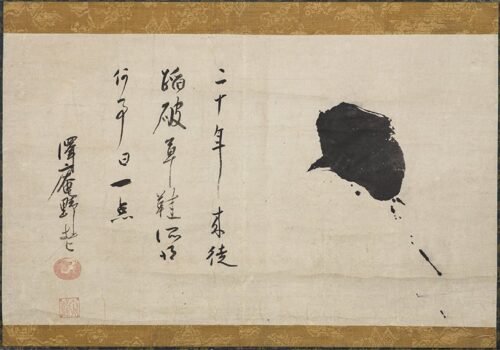 二十年来徒
踏破草鞋所得
何事曰一点
澤庵野